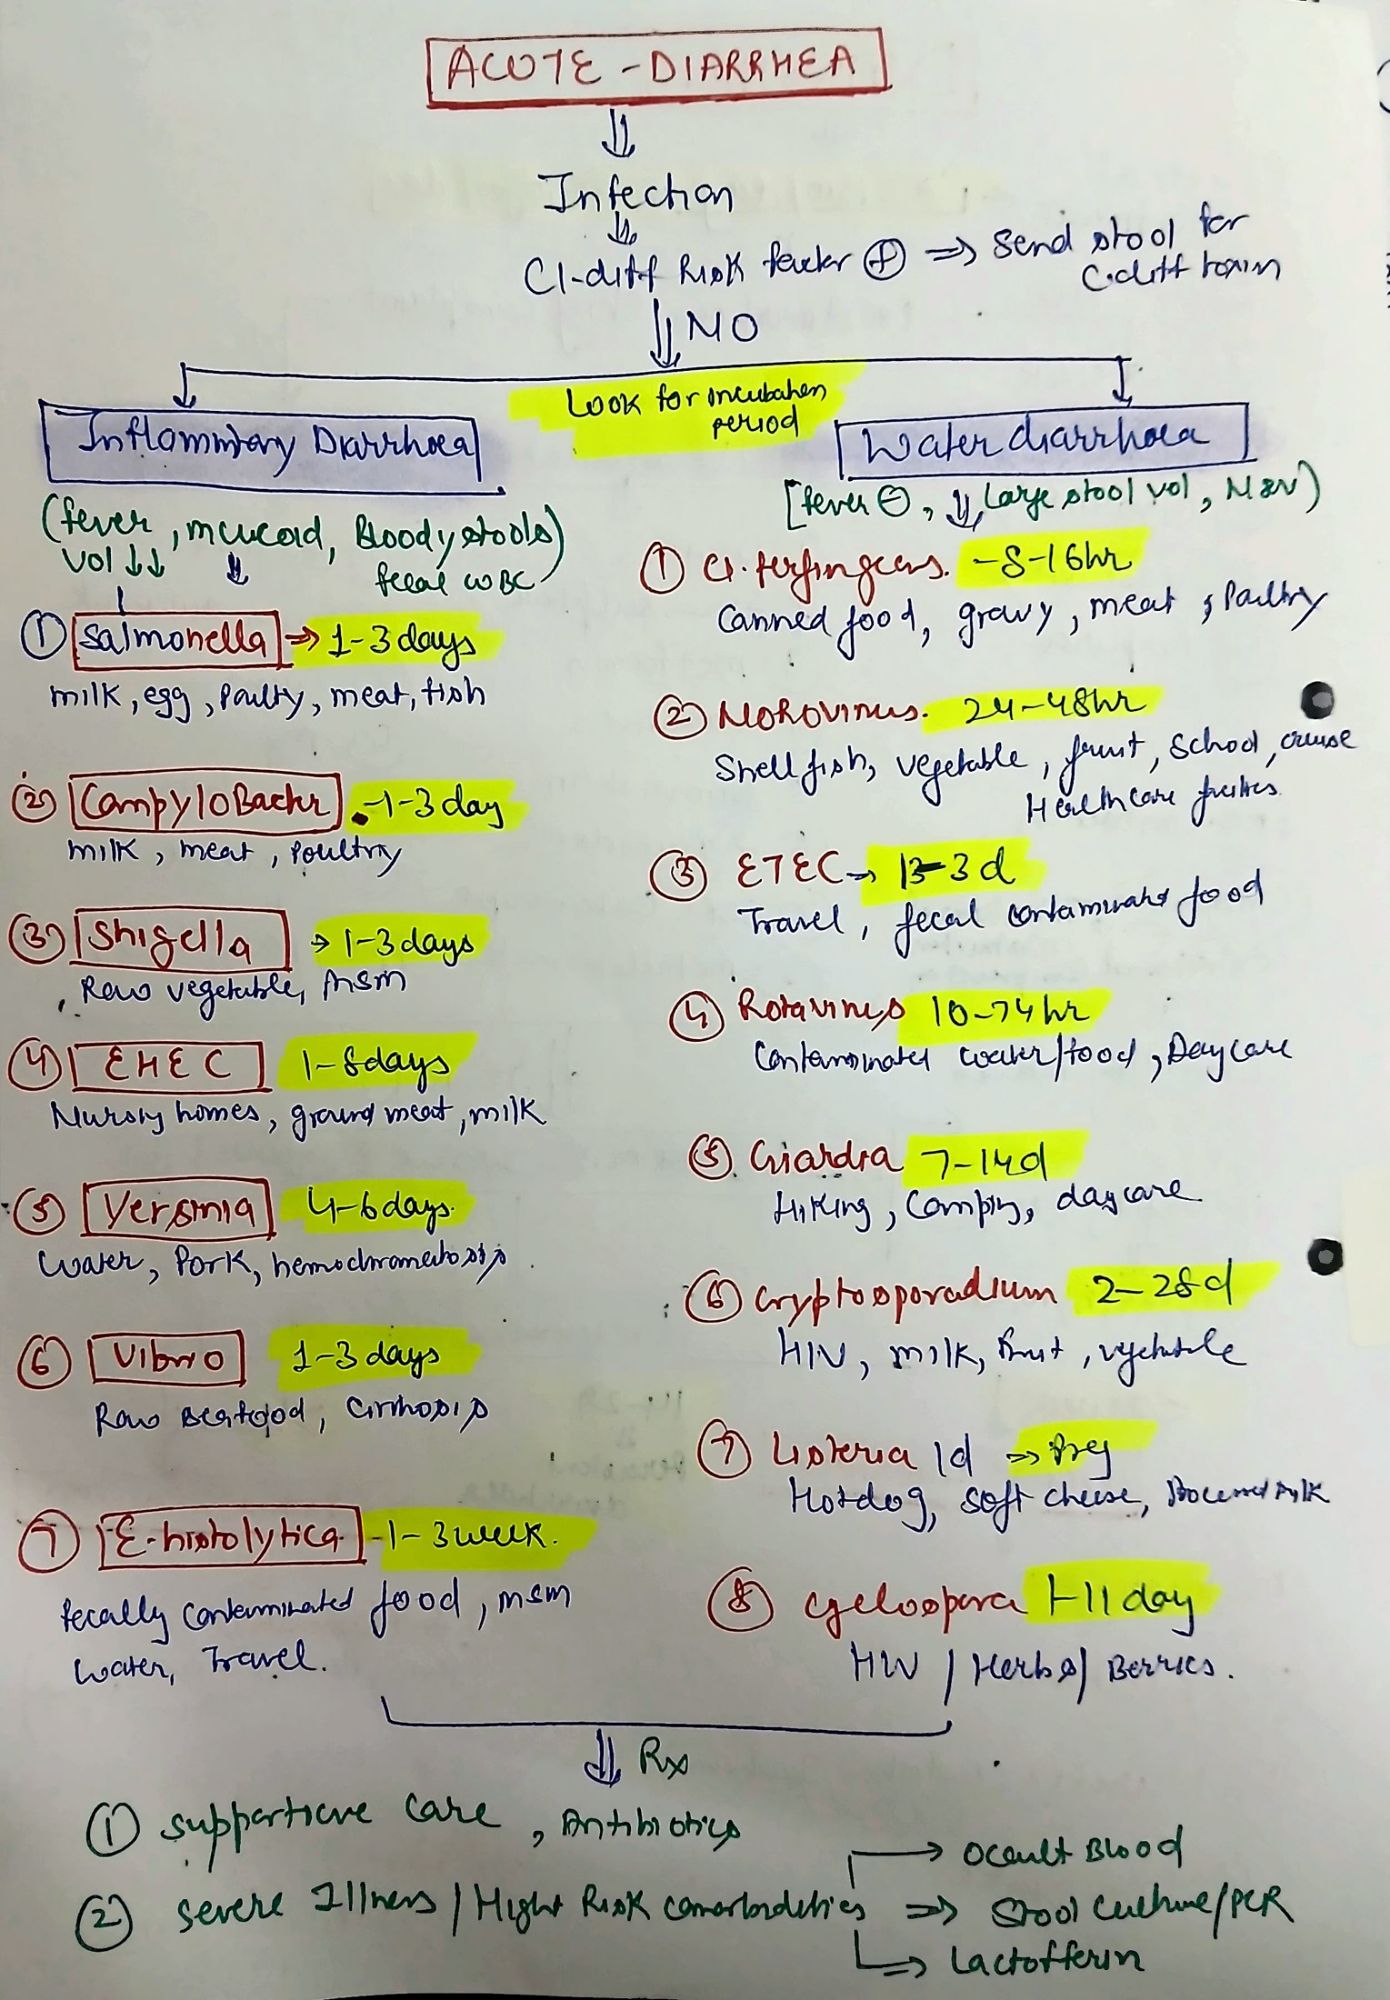 ACUTE - DIARRHEA
Infection
Cl-diff Risk factor ⊕ ⇒ Send stool for
C.diff toxin
NO
Look for incubation
period
Inflammtory Diarrhoea
(fever, mucoid, Bloody stools)
Vol ↓↓ fecal WBC
① Salmonella ⇒ 1-3 days
milk, egg, Poultry, meat, fish
② Campylobacter -1-3 day
milk, meat, poultry
③ Shigella → 1-3 days
Raw vegetable, MSM
④ EHEC 1-8 days
Nursing homes, ground meat, milk
⑤ Yersinia 4-6 days.
Water, Pork, hemochromatosis.
⑥ Vibrio 1-3 days
Raw seafood, Cirrhosis
⑦ E-histolytica -1-3 week.
fecally contaminated food, msm
water, Travel.
Water diarrhoea
[fever ⊖, ⇓ Large stool vol, N&V)
① Cl. perfingens. -8-16hr
Canned food, gravy, meat, Poultry
② Norovirus. 24-48hr
Shell fish, vegetable, fruit, school, cruise
Healthcare
③ ETEC → 1-3 d
Travel, fecal contaminated food
④ Rotavirus 10-74 hr
Contaminated water/food, Daycare
⑤. Giardia 7-14d
Hiking, Camping, daycare
⑥ Cryptosporadium 2-28 d
HIV, milk, fruit, vegetable
⑦ Listeria 1d ⇒ Preg
Hotdog, soft cheese, milk
⑧ Cyclospora 1-11 day
HIV / Herbs / Berries.
⇓ Rx
① Supportive care, Antibiotics
② severe Illness / Hight Risk comorbidities → Occult Blood
⇒ Stool Culture/PCR
⇒ Lactofferin